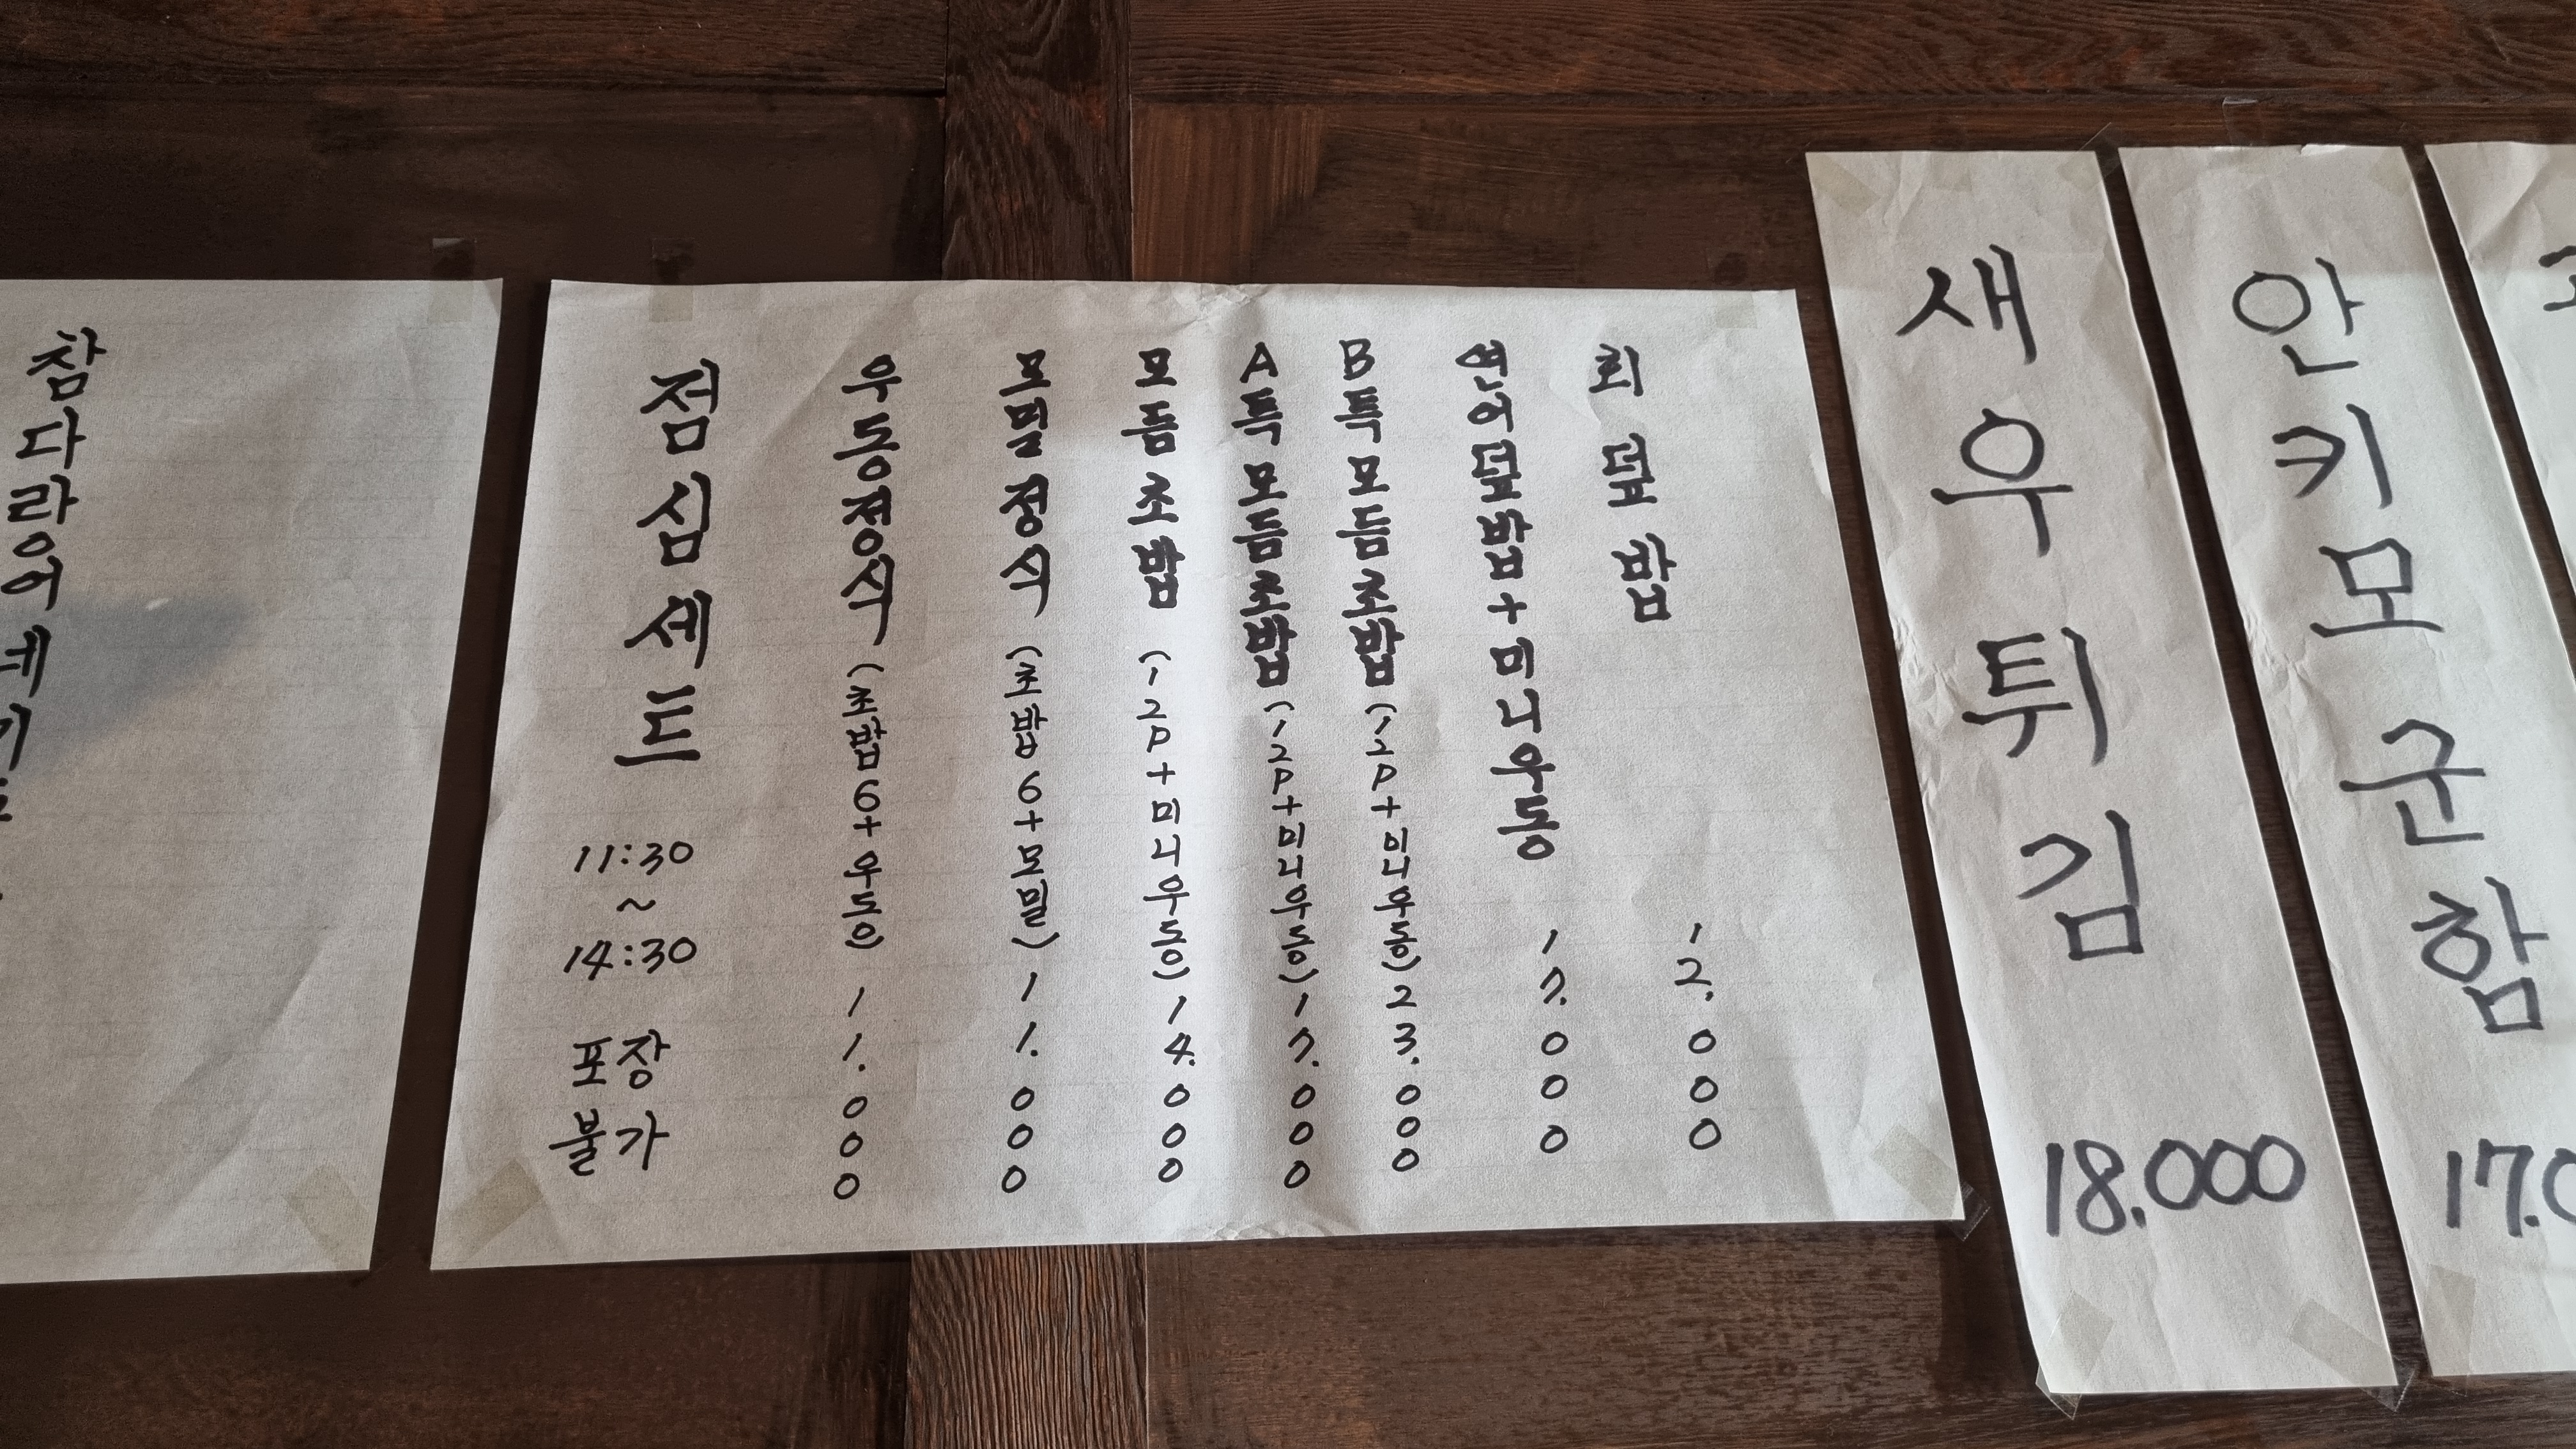 참다랑어
점심세트
11:30
~
14:30
포장
불가
우동정식 (초밥6+우동) 11.000
모밀정식 (초밥6+모밀) 11.000
모듬초밥 (12P+미니우동) 14.000
A특 모듬초밥 (12P+미니우동) 17.000
B특 모듬초밥 (12P+미니우동) 23.000
연어덮밥+미니우동 17.000
회덮밥 12.000
새우튀김 18.000
안키모군함 17.0